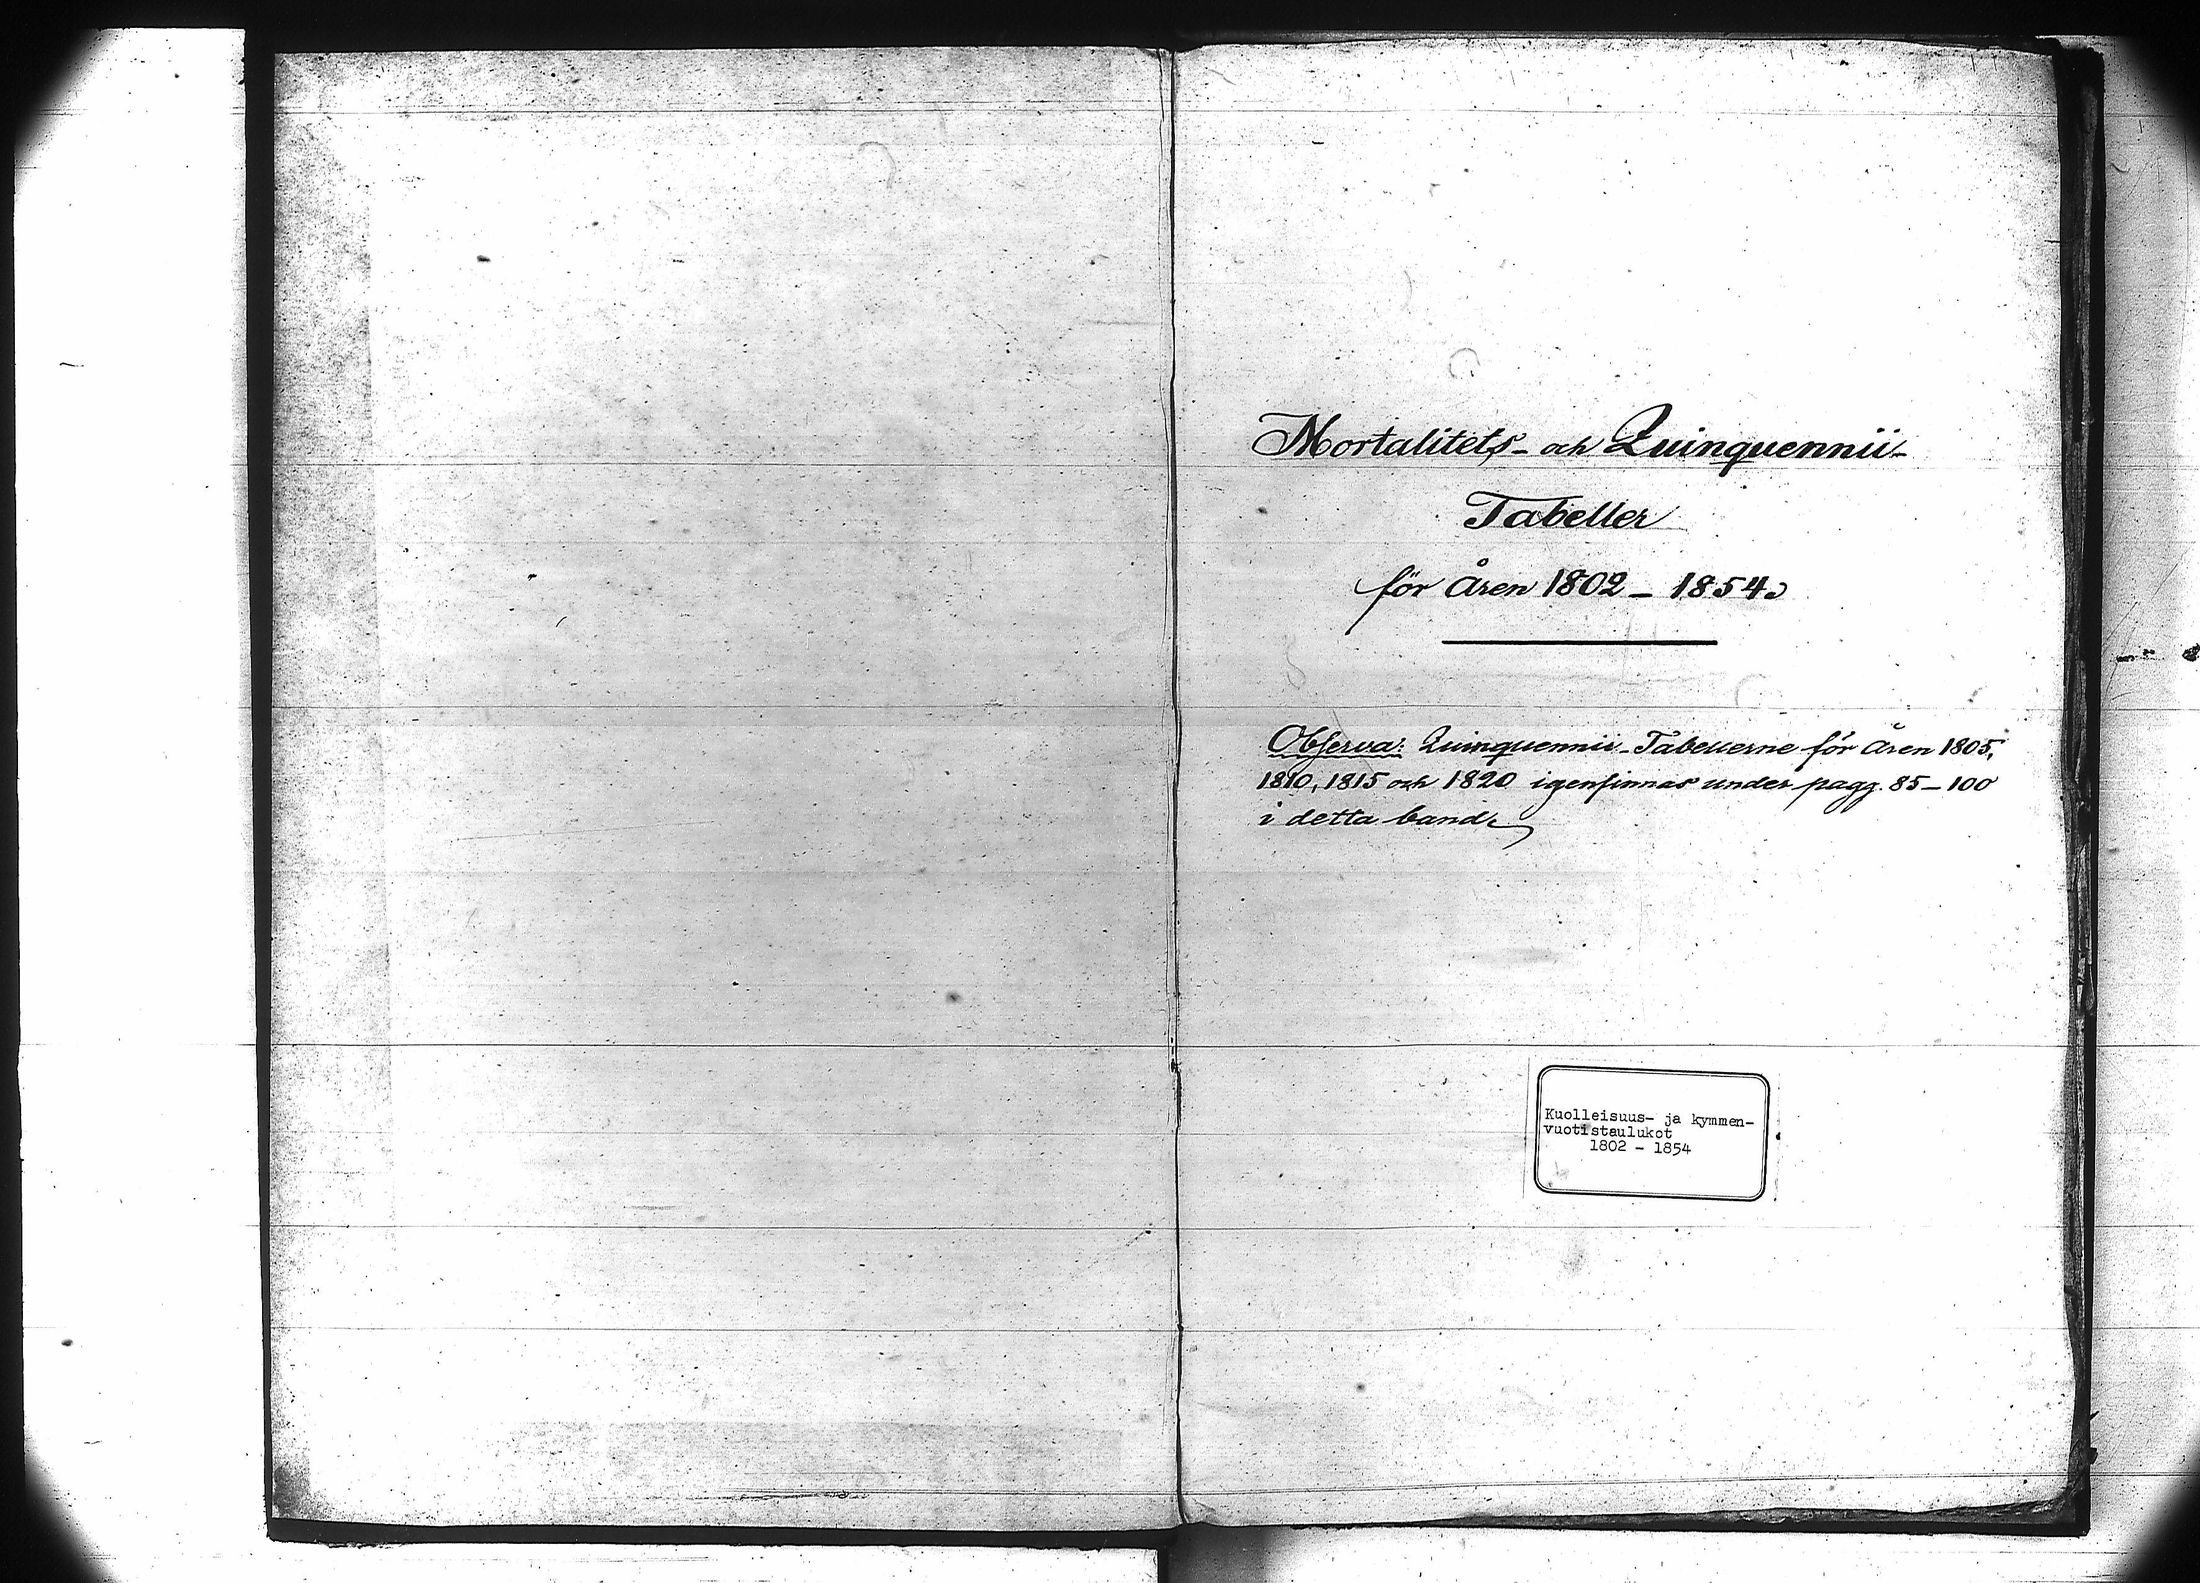 Mortalitets- och Quinquennii-
Tabeller
för Åren 1802 – 1854.
Observa: Quinquennii-Tabellerne för Åren 1805,
1810, 1815 och 1820 igenfinnas under pagg. 85–100
i detta band.
Kuolleisuus- ja kymmen-
vuotistaulukot
1802 - 1854